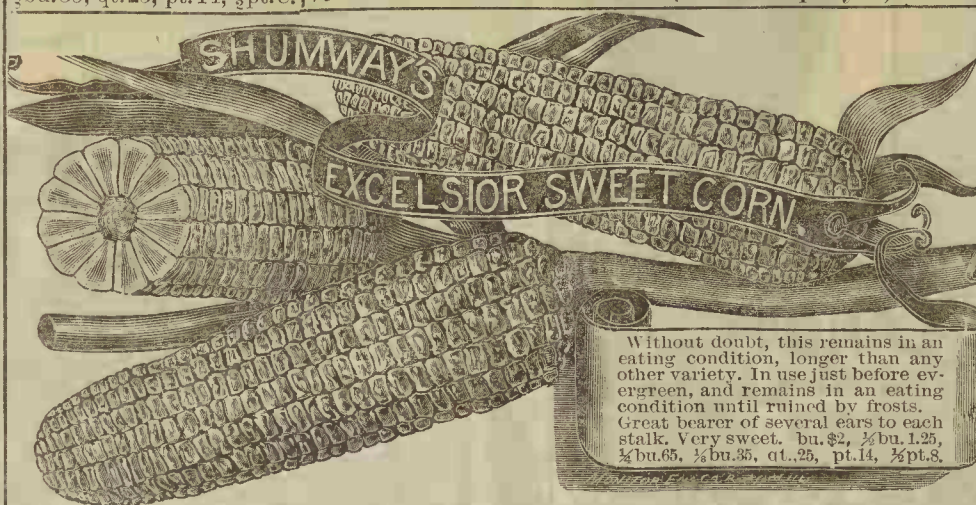 SHUMWAY'S
EXCELSIOR SWEET CORN
Without doubt, this remains in an
eating condition, longer than any
other variety. In use just before ev-
ergreen, and remains in an eating
condition until ruined by frosts.
Great bearer of several ears to each
stalk. Very sweet. bu.$2, ½bu.1.25,
¼bu.65, ⅛bu.35, qt.,25, pt.14, ½pt.8.